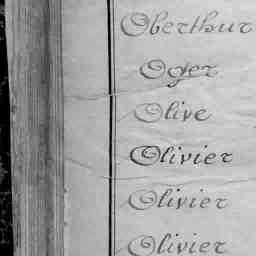 Oberthur
Oger
Olive
Olivier
Olivier
Olivier